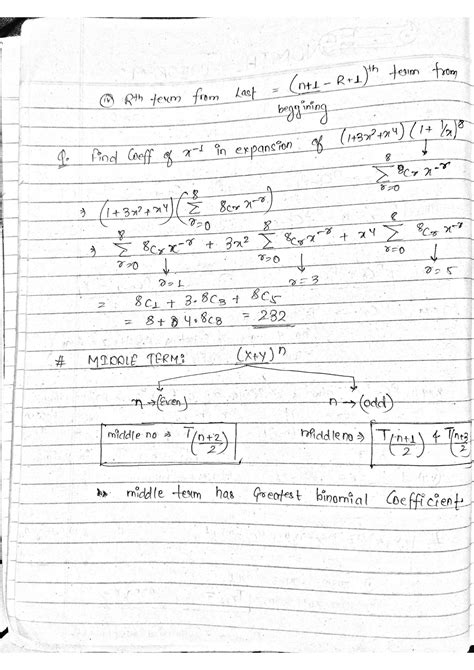 (iv) Rth term from Last = (n+1 - R+1)th term from
beggining
Q. Find Coeff of x^-1 in expansion of (1+3x²+x⁴) (1+ 1/x)^8
8
Σ 8Cr x^-r
r=0
⇒ (1+3x²+x⁴) ( 8 Σ r=0 8Cr x^-r )
⇒ 8 Σ r=0 8Cr x^-r + 3x² 8 Σ r=0 8Cr x^-r + x⁴ 8 Σ r=0 8Cr x^-r
r=1 r=3 r=5
= 8C1 + 3·8C3 + 8C5
= 8+ 4·8C3 = 232
# MIDDLE TERM: (x+y)^n
n→(Even) n→(odd)
middle no ⇒ T(n+2/2) middle no ⇒ T(n+1/2) & T(n+3/2)
middle term has Greatest binomial Coefficient.